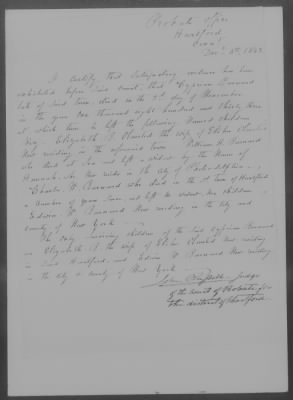 Probate office
Hartford,
Conn.
I certify, that satisfactory evidence has been
exhibited before said court, that Cyprian Barnard
late of said town, died on the day of November
in the year One thousand eight hundred and thirty three
at which time he left the following named children
Viz. Elizabeth A. Olmsted the wife of Olmsted
Now residing in the aforesaid town. William H. Barnard
who died at Sea and left a widow by the Name of
Hannah, who Now resides in the City of
Charles H. Barnard who died in the s'd town of Hartford
a Number of years Since, and left No widow, nor children
Edwin W. Barnard Now residing in the City and
county of New York.
The only surviving children of the said Cyprian Barnard
is Elizabeth A. the wife of Olmsted Now residing
in said Hartford, and Edwin W. Barnard Now residing
in the City & County of New York.
John Russell Judge
of the Court of Probate for
the district of Hartford.